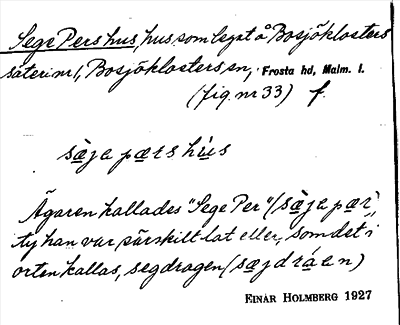 Sege Pers hus, hus, som legat å Bosjöklosters
säteri nr 1, Bosjöklosters sn, Frosta hd, Malm. l.
(fig. nr 33) f.
sæja pærs hús
Ägaren kallades "Sege Per" (sæja pær),
ty han var särskilt lat eller, som det i
orten kallas, segdragen (sæjdráen)
EINAR HOLMBERG 1927